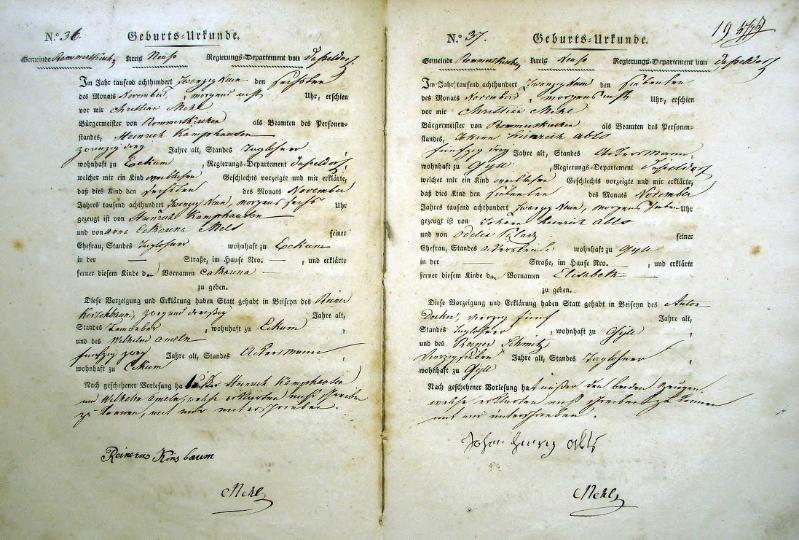 N.º 36. Geburts-Urkunde.
Gemeinde Rommerskirchen Kreis Neuss Regierungs-Departement von Düsseldorf
Im Jahr tausend achthundert zwanzig neun den sechsten
des Monats November, morgens acht Uhr, erschien
vor mir Christian Mehl
Bürgermeister von Rommerskirchen als Beamten des Personen-
standes, Heinrich Kamphausen
zwanzig drey Jahre alt, Standes Taglöhner
wohnhaft zu Eckum, Regierungs-Departement Düsseldorf,
welcher mir ein Kind weiblichen Geschlechts vorzeigte und mir erklärte,
daß dies Kind den sechsten des Monats November
Jahres tausend achthundert zwanzig neun, morgens sechs Uhr
gezeugt ist von Heinrich Kamphausen
und von seiner
Ehefrau, Standes Taglöhner wohnhaft zu Eckum
in der Straße, im Hause Nro. , und erklärte
ferner diesem Kinde den Vornamen Catharina
zu geben.
Diese Vorzeigung und Erklärung haben Statt gehabt in Beiseyn des Reiner
Kirschbaum, zwey und dreißig Jahre alt,
Standes , wohnhaft zu Eckum,
und des Wilhelm
fünfzig zwey Jahre alt, Standes Ackersmann,
wohnhaft zu Eckum
Nach geschehener Vorlesung ha außer Heinrich Kamphausen
und Wilhelm welche erklärten nicht schreiben
zu können, mit mir unterschrieben.
Reinerus Kirsbaum
Mehl
19
N.º 37. Geburts-Urkunde.
Gemeinde Rommerskirchen Kreis Neuss Regierungs-Departement von Düsseldorf
Im Jahr tausend achthundert zwanzig neun den siebenten
des Monats November, morgens acht Uhr, erschien
vor mir Christian Mehl
Bürgermeister von Rommerskirchen als Beamten des Personen-
standes, Heinrich Abts
fünfzig drey Jahre alt, Standes Ackersmann
wohnhaft zu Gyll, Regierungs-Departement Düsseldorf
welcher mir ein Kind weiblichen Geschlechts vorzeigte und mir erklärte,
daß dies Kind den siebenten des Monats November
Jahres tausend achthundert zwanzig neun, morgens Uhr
gezeugt ist von Johann Heinrich Abts
und von Odilia seiner
Ehefrau, Standes wohnhaft zu Gyll
in der Straße, im Hause Nro. , und erklärte
ferner diesem Kinde den Vornamen Elisabeth
zu geben.
Diese Vorzeigung und Erklärung haben Statt gehabt in Beiseyn des Anton
Decker, vierzig fünf Jahre alt,
Standes Taglöhner, wohnhaft zu Gyll,
und des Reiner Schmitz
vierzig sieben Jahre alt, Standes Taglöhner,
wohnhaft zu Gyll
Nach geschehener Vorlesung ha außer den beiden Zeugen,
welche erklärten nicht schreiben zu können
mit mir unterschrieben.
Abts
Mehl